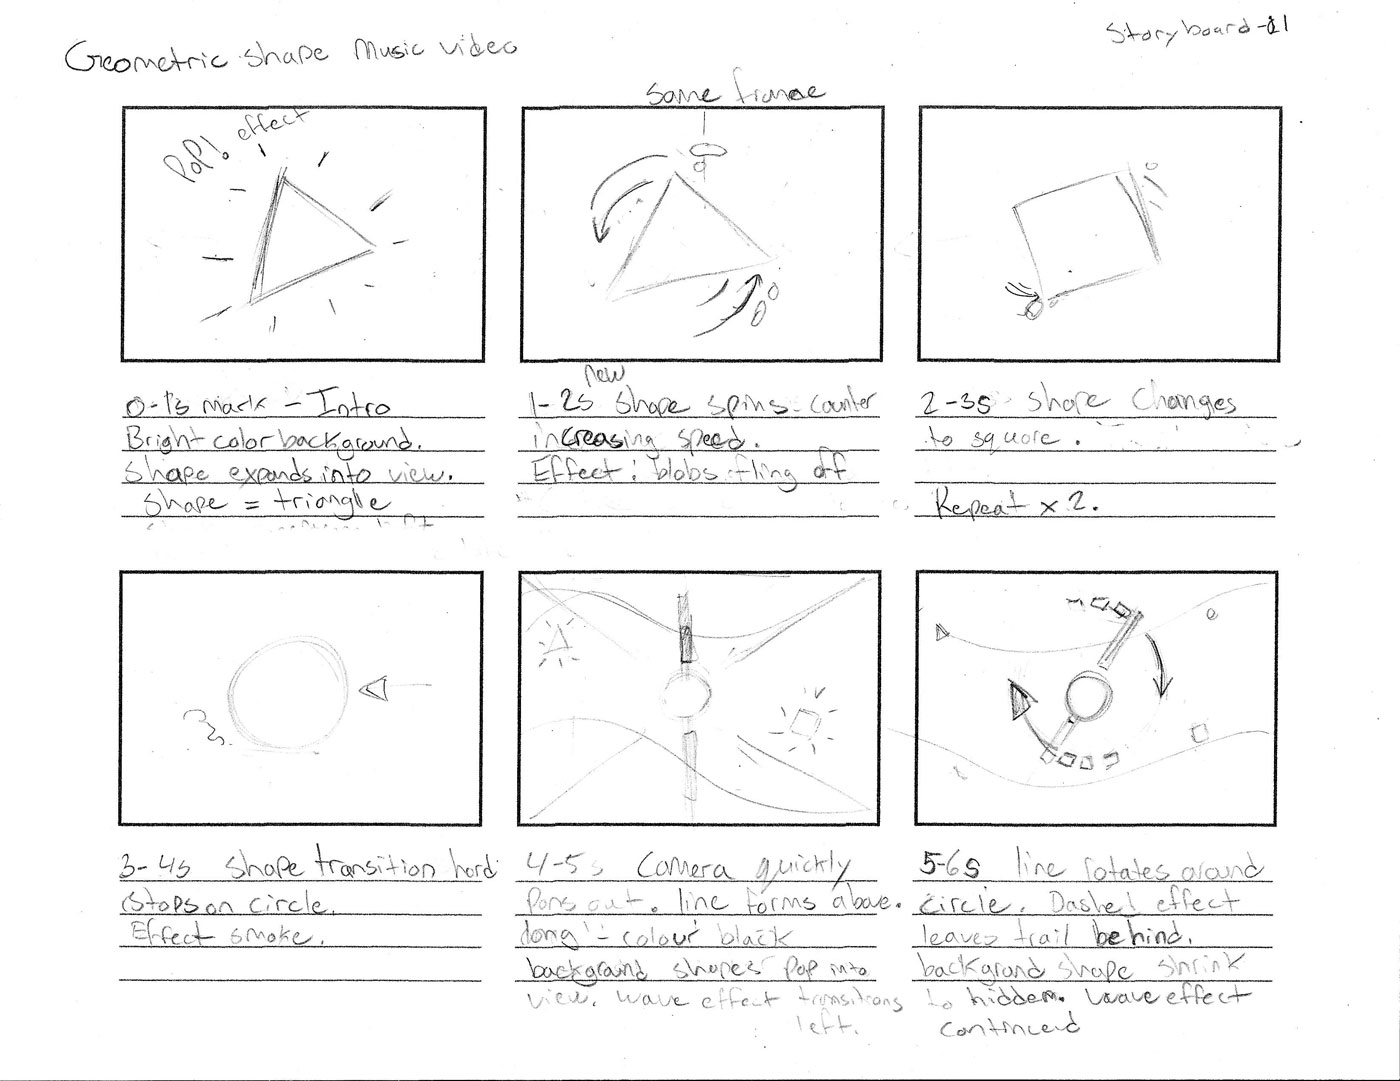 Geometric shape Music video
Storyboard-01
Same frame
POP! effect
0-1s mark - Intro
Bright color background.
Shape expands into view.
Shape = triangle
new
1-2s shape spins counter
increasing speed.
Effect: blobs fling off
2-3s shape changes
to square.
Repeat x 2.
3-4s shape transition hard
stops on circle.
Effect smoke.
4-5s Camera quickly
Pans out. line forms above.
long - colour black
background shapes pop into
view. wave effect transitions
left.
5-6s line rotates around
circle. Dashed effect
leaves trail behind.
background shape shrink
to hidden. wave effect
continued